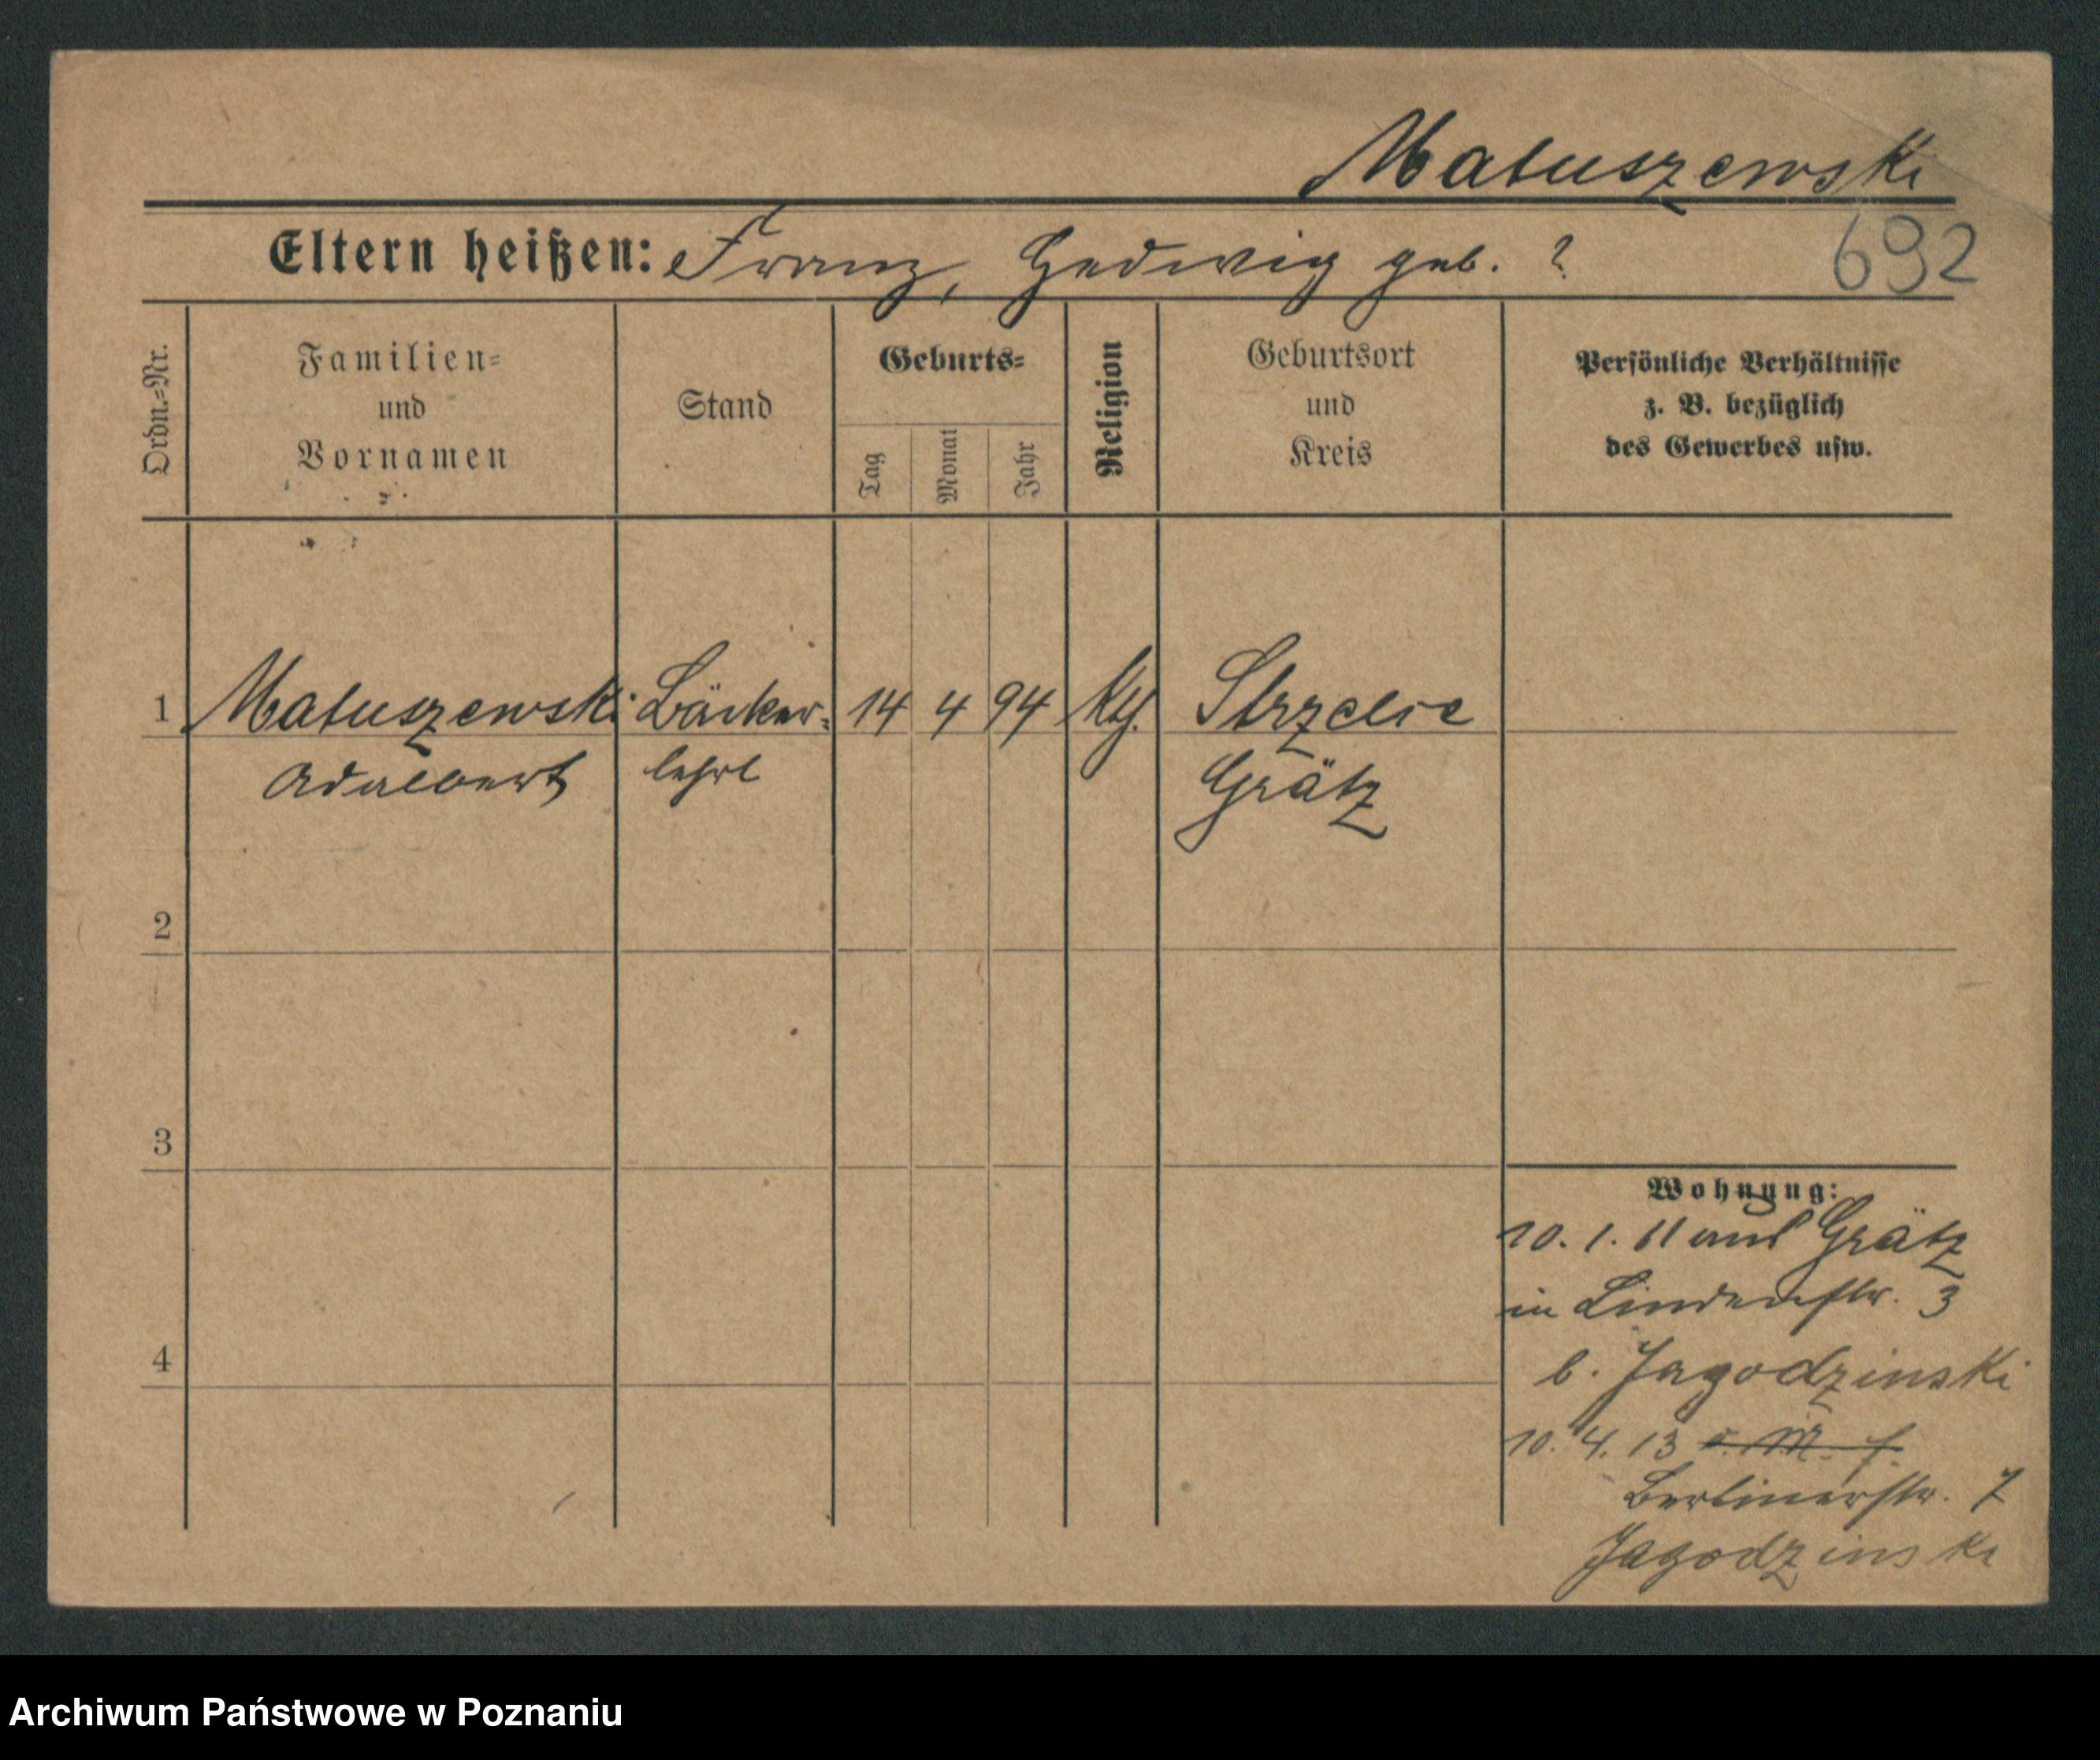 Matuszewski
Eltern heißen: Franz, Hedwig geb. ?
692
Ordn.=Nr.
Familien=
und
Vornamen
Stand
Geburts=
Tag
Monat
Jahr
Religion
Geburtsort
und
Kreis
Persönliche Verhältnisse
z. B. bezüglich
des Gewerbes usw.
1 Matuszewski Bäcker= 14 4 94 kth. Strzelce
Adalbert lehrl Grätz
2
3
4
Wohnung:
10. 1. 11 aus Grätz
in Lindenstr. 3
b. Jagodzinski
10. 4. 13
Berlinerstr. 7
Jagodzinski
Archiwum Państwowe w Poznaniu